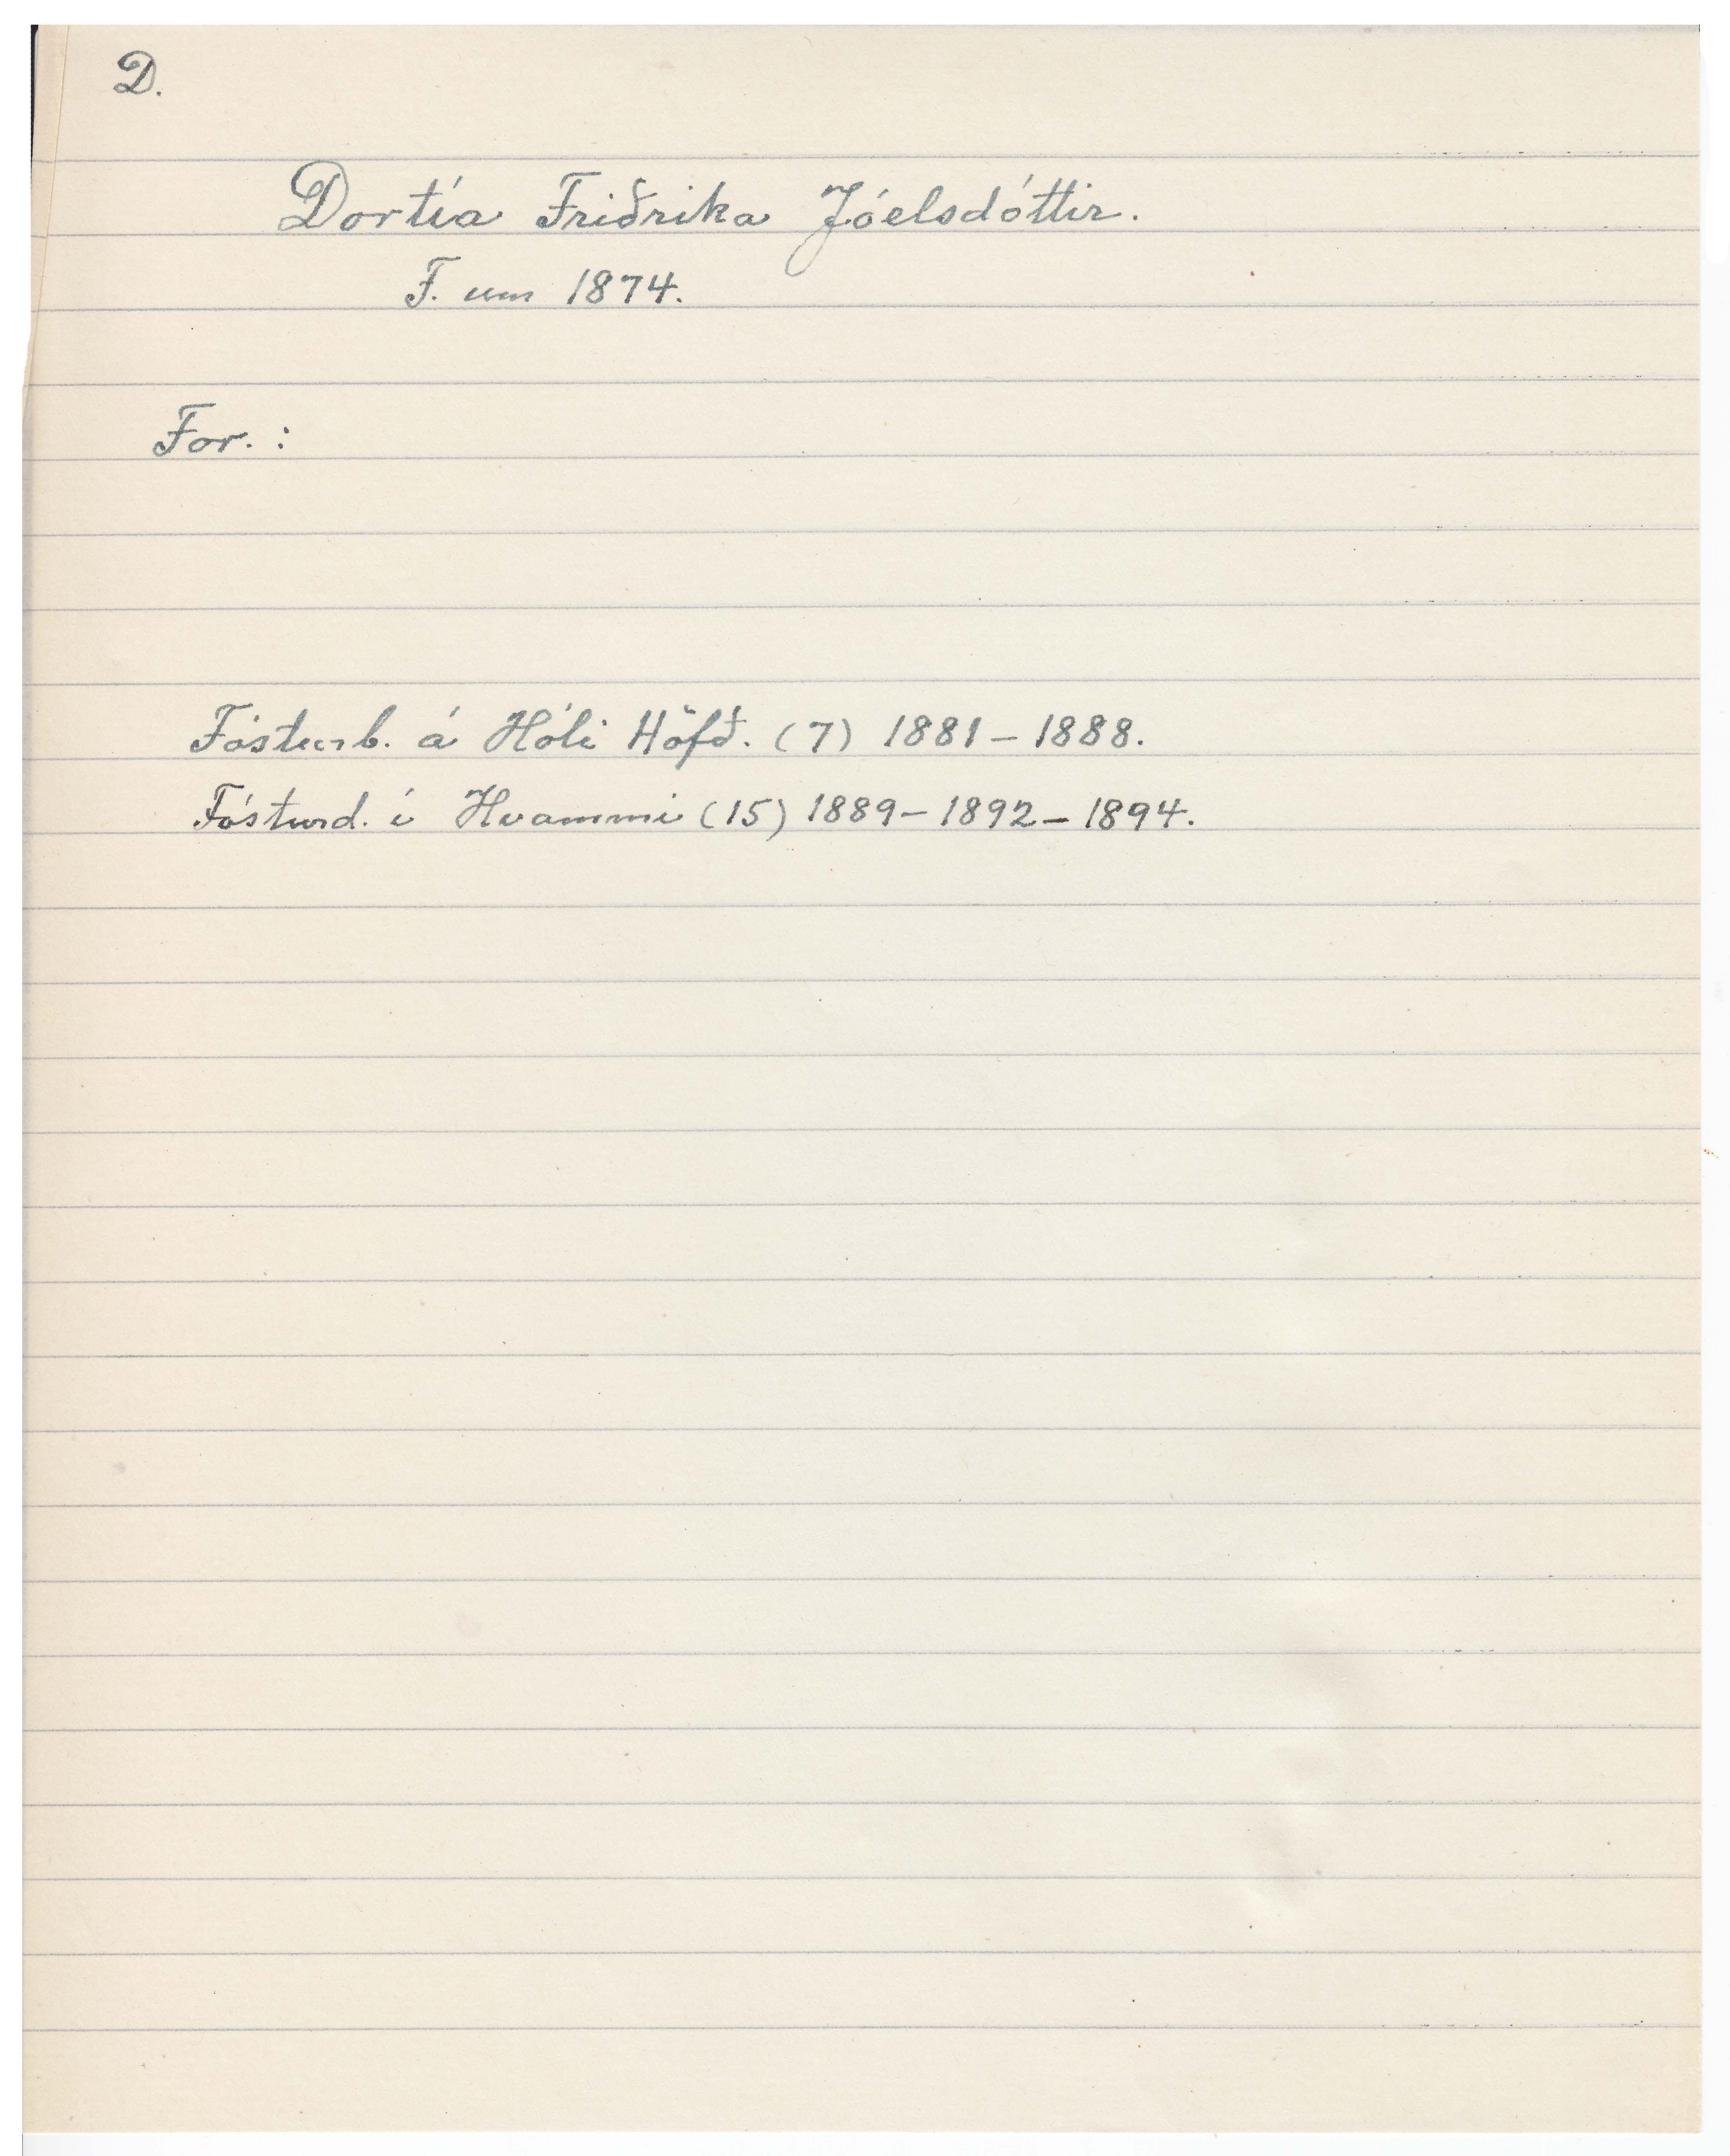 D.
Dortía Friðrika Jóelsdóttir.
F. um 1874.
For. :
Fósturb. á Hóli Höfð. (7) 1881 – 1888.
Fósturd. í Hvammi (15) 1889 – 1892 – 1894.